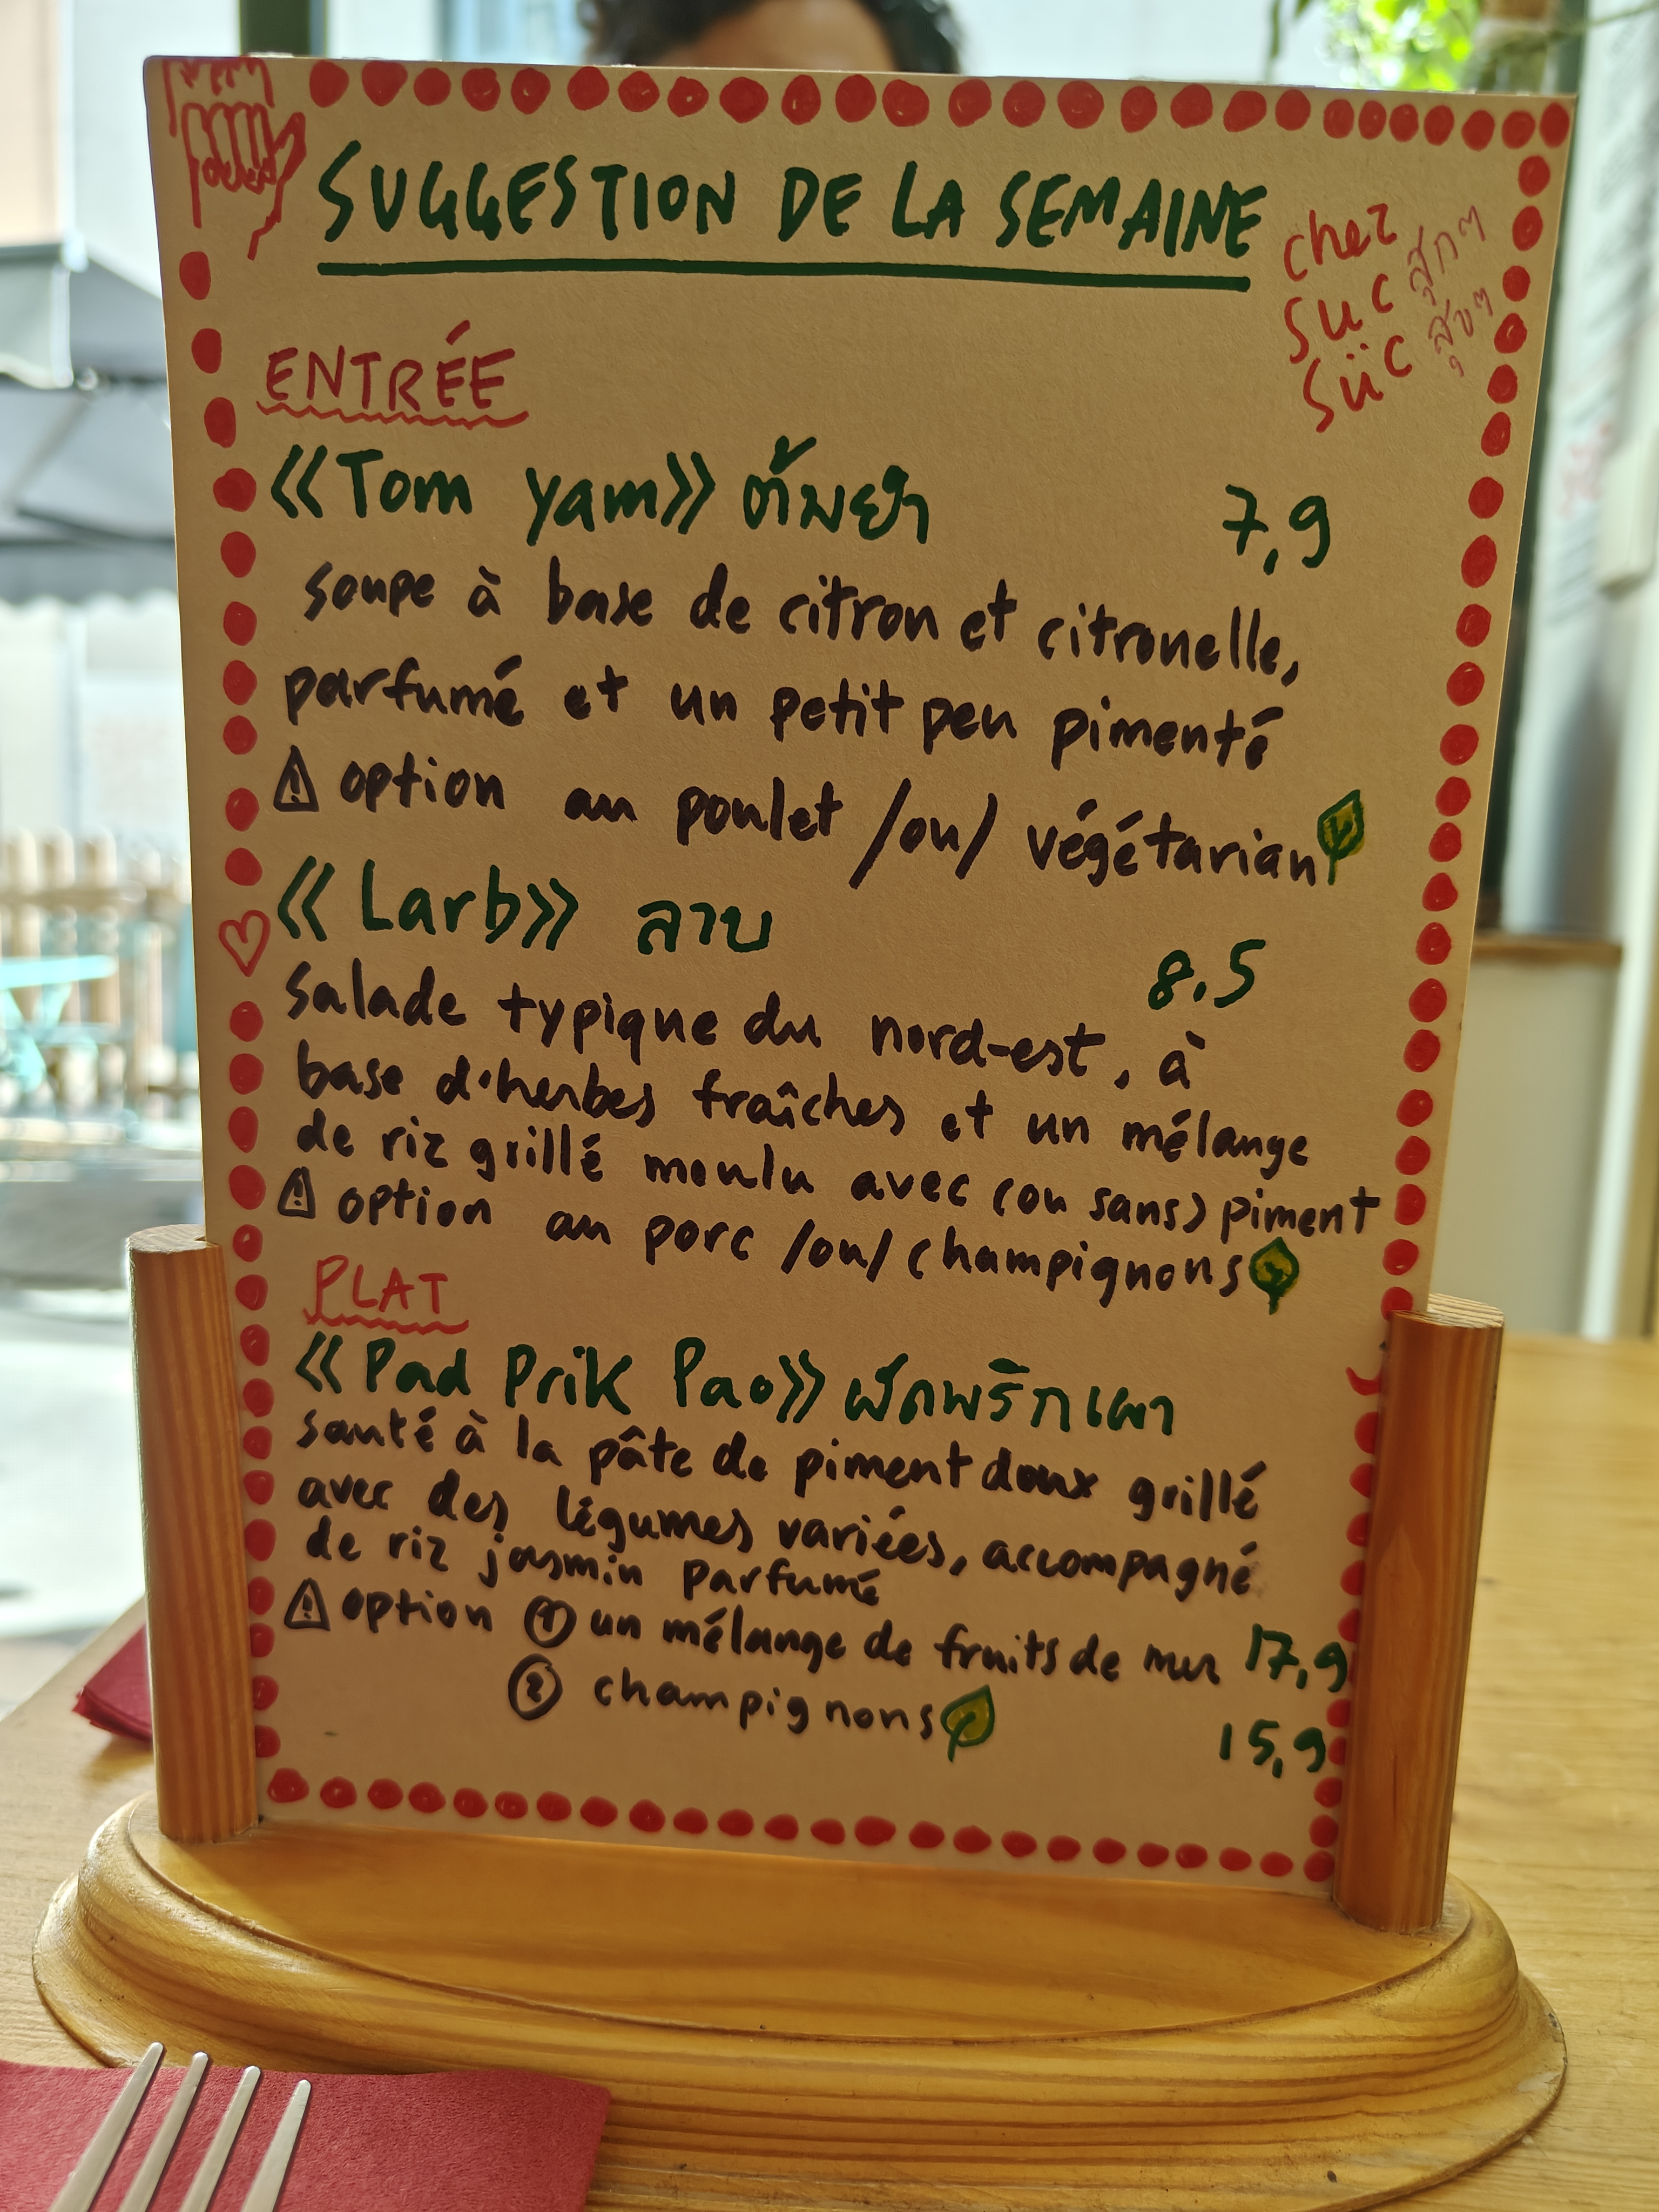 SUGGESTION DE LA SEMAINE
chez
suc สุกๆ
süc สุขๆ
ENTRÉE
«Tom yam» ต้มยำ 7,9
soupe à base de citron et citronelle,
parfumé et un petit peu pimenté
⚠ option au poulet /ou/ végétarian
«Larb» ลาบ 8.5
salade typique du nord-est, à
base d'herbes fraîches et un mélange
de riz grillé moulu avec (ou sans) piment
⚠ option au porc /ou/ champignons
PLAT
«Pad Prik Pao» ผัดพริกเผา
santé à la pâte de piment doux grillé
avec des légumes variées, accompagné
de riz jasmin parfumé
⚠ option ① un mélange de fruits de mer 17,9
② champignons 15,9